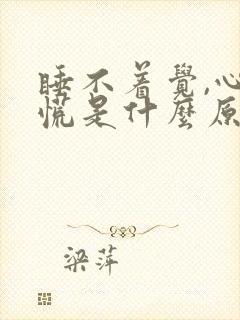 睡不着覺,心
慌是什麼原
梁萍